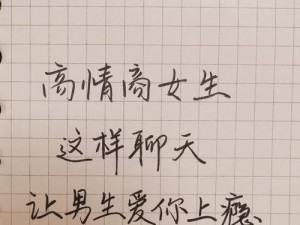 高情商女生
这样聊天
让男生爱你上瘾